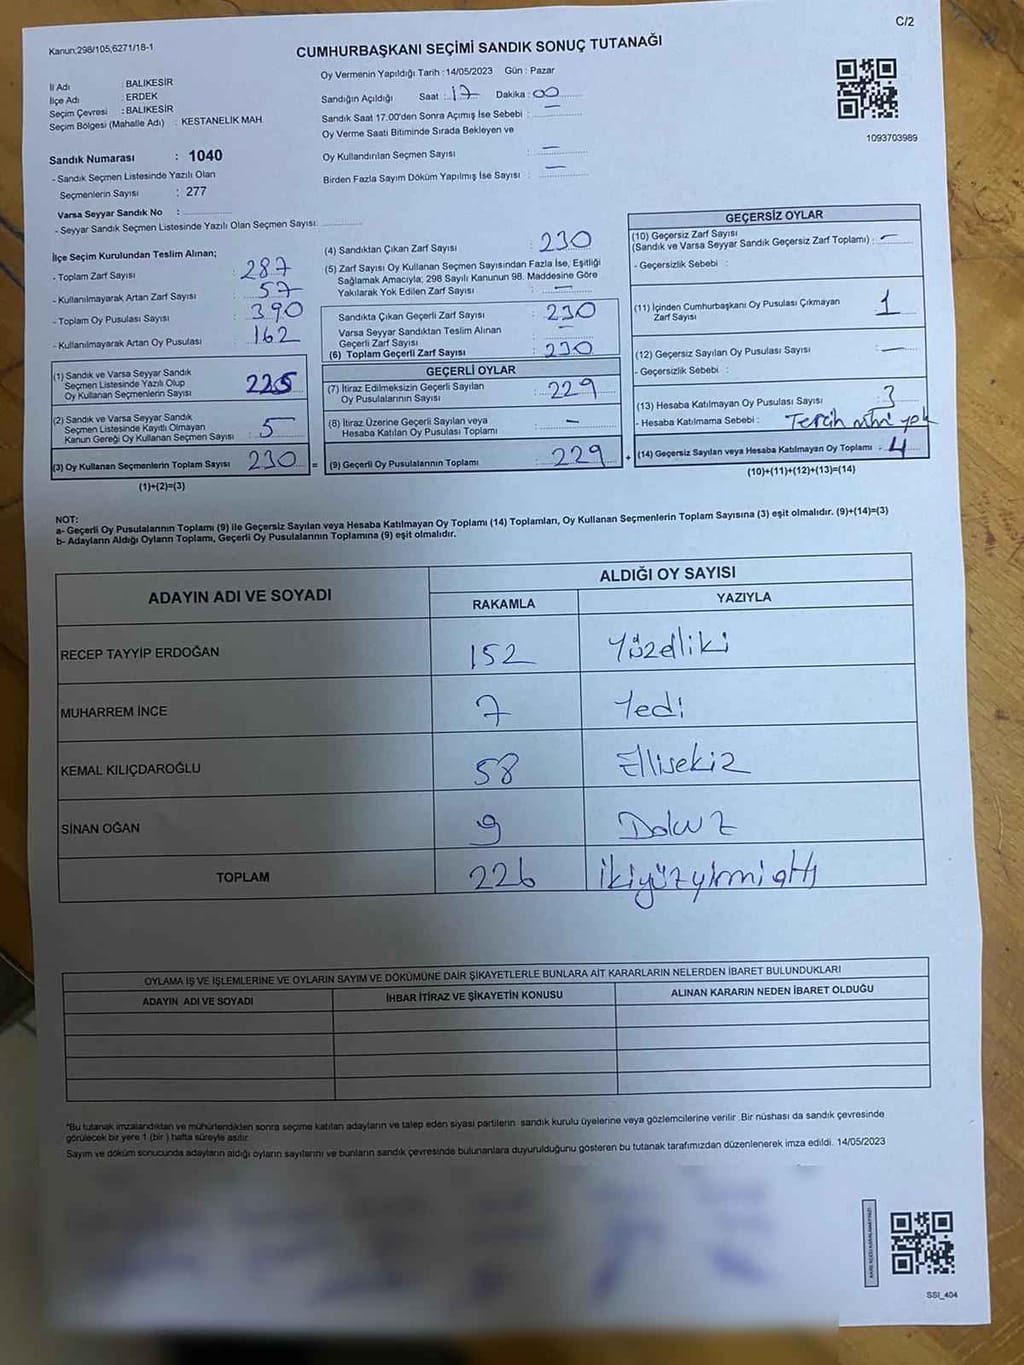 C/2
Kanun;298/105;6271/18-1
CUMHURBAŞKANI SEÇİMİ SANDIK SONUÇ TUTANAĞI
İl Adı : BALIKESİR
İlçe Adı : ERDEK
Seçim Çevresi : BALIKESİR
Seçim Bölgesi (Mahalle Adı) : KESTANELİK MAH.
Sandık Numarası : 1040
- Sandık Seçmen Listesinde Yazılı Olan
Seçmenlerin Sayısı : 277
Varsa Seyyar Sandık No :
- Seyyar Sandık Seçmen Listesinde Yazılı Olan Seçmen Sayısı:
Oy Vermenin Yapıldığı Tarih : 14/05/2023 Gün : Pazar
Sandığın Açıldığı Saat : 17 Dakika : 00
Sandık Saat 17.00'den Sonra Açımış İse Sebebi : —
Oy Verme Saati Bitiminde Sırada Bekleyen ve
Oy Kullandırılan Seçmen Sayısı : —
Birden Fazla Sayım Döküm Yapılmış İse Sayısı : —
1093703989
İlçe Seçim Kurulundan Teslim Alınan;
- Toplam Zarf Sayısı : 287
- Kullanılmayarak Artan Zarf Sayısı : 57
- Toplam Oy Pusulası Sayısı : 390
- Kullanılmayarak Artan Oy Pusulası : 162
(1) Sandık ve Varsa Seyyar Sandık
Seçmen Listesinde Yazılı Olup
Oy Kullanan Seçmenlerin Sayısı : 225
(2) Sandık ve Varsa Seyyar Sandık
Seçmen Listesinde Kayıtlı Olmayan
Kanun Gereği Oy Kullanan Seçmen Sayısı : 5
(3) Oy Kullanan Seçmenlerin Toplam Sayısı 230
(1)+(2)=(3)
(4) Sandıktan Çıkan Zarf Sayısı : 230
(5) Zarf Sayısı Oy Kullanan Seçmen Sayısından Fazla İse, Eşitliği
Sağlamak Amacıyla, 298 Sayılı Kanunun 98. Maddesine Göre
Yakılarak Yok Edilen Zarf Sayısı : —
Sandıkta Çıkan Geçerli Zarf Sayısı : 230
Varsa Seyyar Sandıktan Teslim Alınan
Geçerli Zarf Sayısı : —
(6) Toplam Geçerli Zarf Sayısı : 230
GEÇERLİ OYLAR
(7) İtiraz Edilmeksizin Geçerli Sayılan
Oy Pusulalarının Sayısı : 229
(8) İtiraz Üzerine Geçerli Sayılan veya
Hesaba Katılan Oy Pusulası Toplamı : —
= (9) Geçerli Oy Pusulalarının Toplamı : 229 +
GEÇERSİZ OYLAR
(10) Geçersiz Zarf Sayısı
(Sandık ve Varsa Seyyar Sandık Geçersiz Zarf Toplamı) : —
- Geçersizlik Sebebi :
(11) İçinden Cumhurbaşkanı Oy Pusulası Çıkmayan
Zarf Sayısı : 1
(12) Geçersiz Sayılan Oy Pusulası Sayısı : —
- Geçersizlik Sebebi :
(13) Hesaba Katılmayan Oy Pusulası Sayısı : 3
- Hesaba Katılmama Sebebi : Tercih mührü yok
(14) Geçersiz Sayılan veya Hesaba Katılmayan Oy Toplamı : 4
(10)+(11)+(12)+(13)=(14)
NOT:
a- Geçerli Oy Pusulalarının Toplamı (9) ile Geçersiz Sayılan veya Hesaba Katılmayan Oy Toplamı (14) Toplamları, Oy Kullanan Seçmenlerin Toplam Sayısına (3) eşit olmalıdır. (9)+(14)=(3)
b- Adayların Aldığı Oyların Toplamı, Geçerli Oy Pusulalarının Toplamına (9) eşit olmalıdır.
ADAYIN ADI VE SOYADI ALDIĞI OY SAYISI
RAKAMLA YAZIYLA
RECEP TAYYİP ERDOĞAN 152 Yüzelliki
MUHARREM İNCE 7 Yedi
KEMAL KILIÇDAROĞLU 58 Ellisekiz
SİNAN OĞAN 9 Dokuz
TOPLAM 226 ikiyüzyirmi altı
OYLAMA İŞ VE İŞLEMLERİNE VE OYLARIN SAYIM VE DÖKÜMÜNE DAİR ŞİKAYETLERLE BUNLARA AİT KARARLARIN NELERDEN İBARET BULUNDUKLARI
ADAYIN ADI VE SOYADI İHBAR İTİRAZ VE ŞİKAYETİN KONUSU ALINAN KARARIN NEDEN İBARET OLDUĞU
"Bu tutanak imzalandıktan ve mühürlendikten sonra seçime katılan adayların ve talep eden siyasi partilerin sandık kurulu üyelerine veya gözlemcilerine verilir .Bir nüshası da sandık çevresinde
görülecek bir yere 1 (bir ) hafta süreyle asılır.
Sayım ve döküm sonucunda adayların aldığı oyların sayılarını ve bunların sandık çevresinde bulunanlara duyurulduğunu gösteren bu tutanak tarafımızdan düzenlenerek imza edildi. 14/05/2023
SSI_404